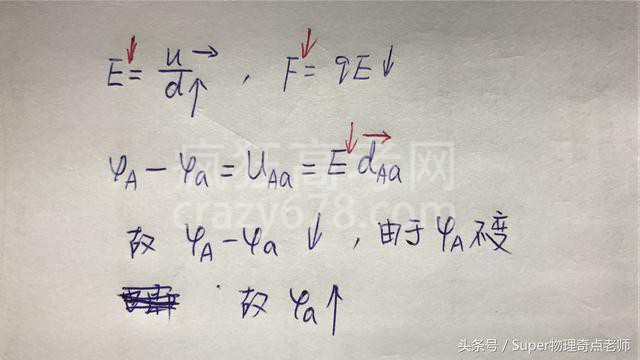 E↓ = u→/d↑ , F↓ = qE↓
φA − φa = UAa = E↓ dAa→
故 φA − φa ↓ , 由于 φA 不变
故 φa ↑
疯狂高考网
crazy678.com
头条号 / Super物理奇点老师